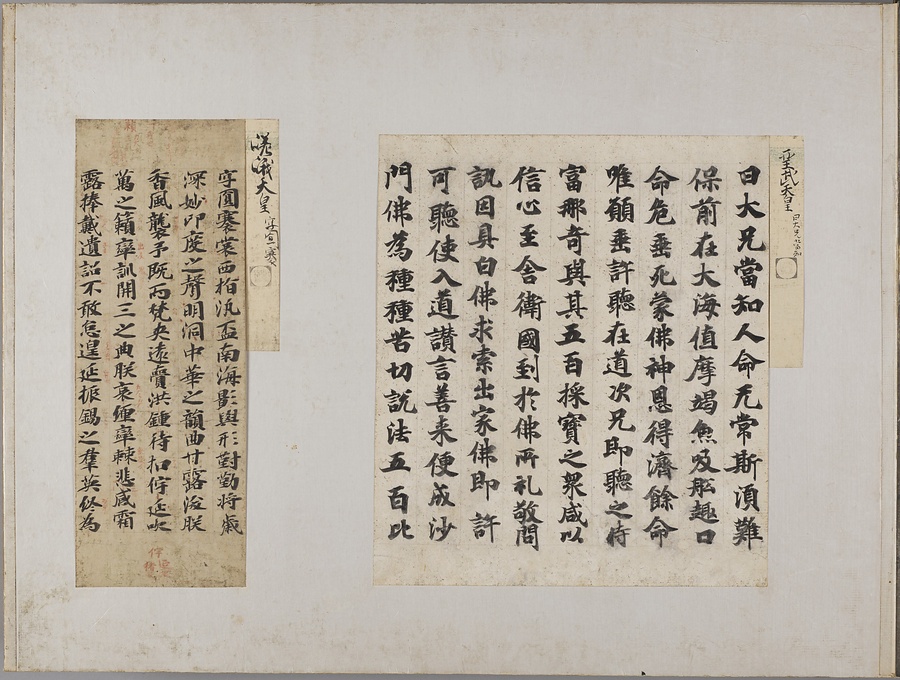 聖武天皇 曰大兄當知
曰大兄當知人命无常斯湏難
保前在大海值摩竭魚吸舩趣口
命危垂死蒙佛神恩得濟餘命
唯願垂許聽在道次兄即聽之侍
富那奇與其五百採寶之衆咸以
信心至舍衛國到於佛所礼敬問
訊因具白佛求索出家佛即許
可聽使入道讃言善来便成沙
門佛為種種苦切說法五百比
嵯峨天皇
圓褰裳西汎盃南海影與形對勤將歲
深妙印度之聲明洞中華之韻曲甘露朕
香風襲予既而梵夾遠賷洪鍾待扣佇延吹
萬之籟訓開三之典朕哀纏棘悲感霜
露捧戴遺詔不敢怠遑延振錫之羣英終為